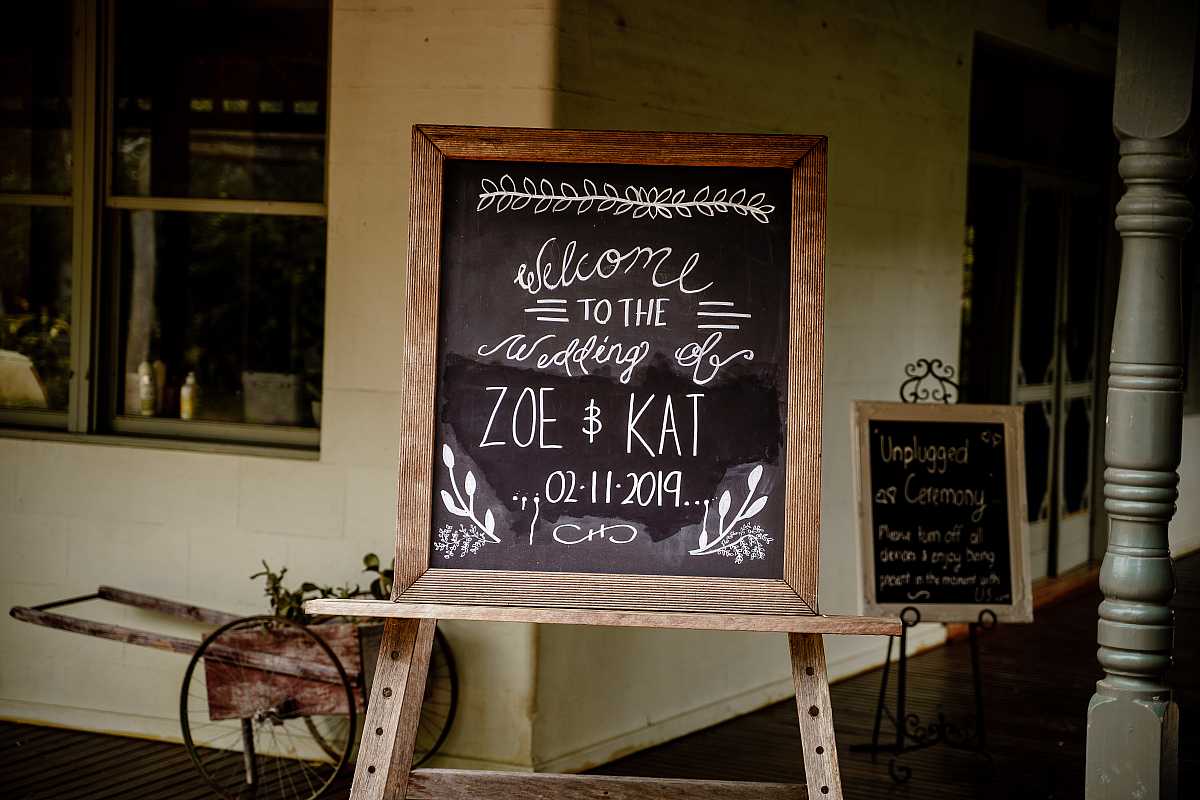 Welcome
TO THE
Wedding of
ZOE & KAT
02·11·2019....
Unplugged
Ceremony
Please turn off all
devices & enjoy being
present in the moment with
US...